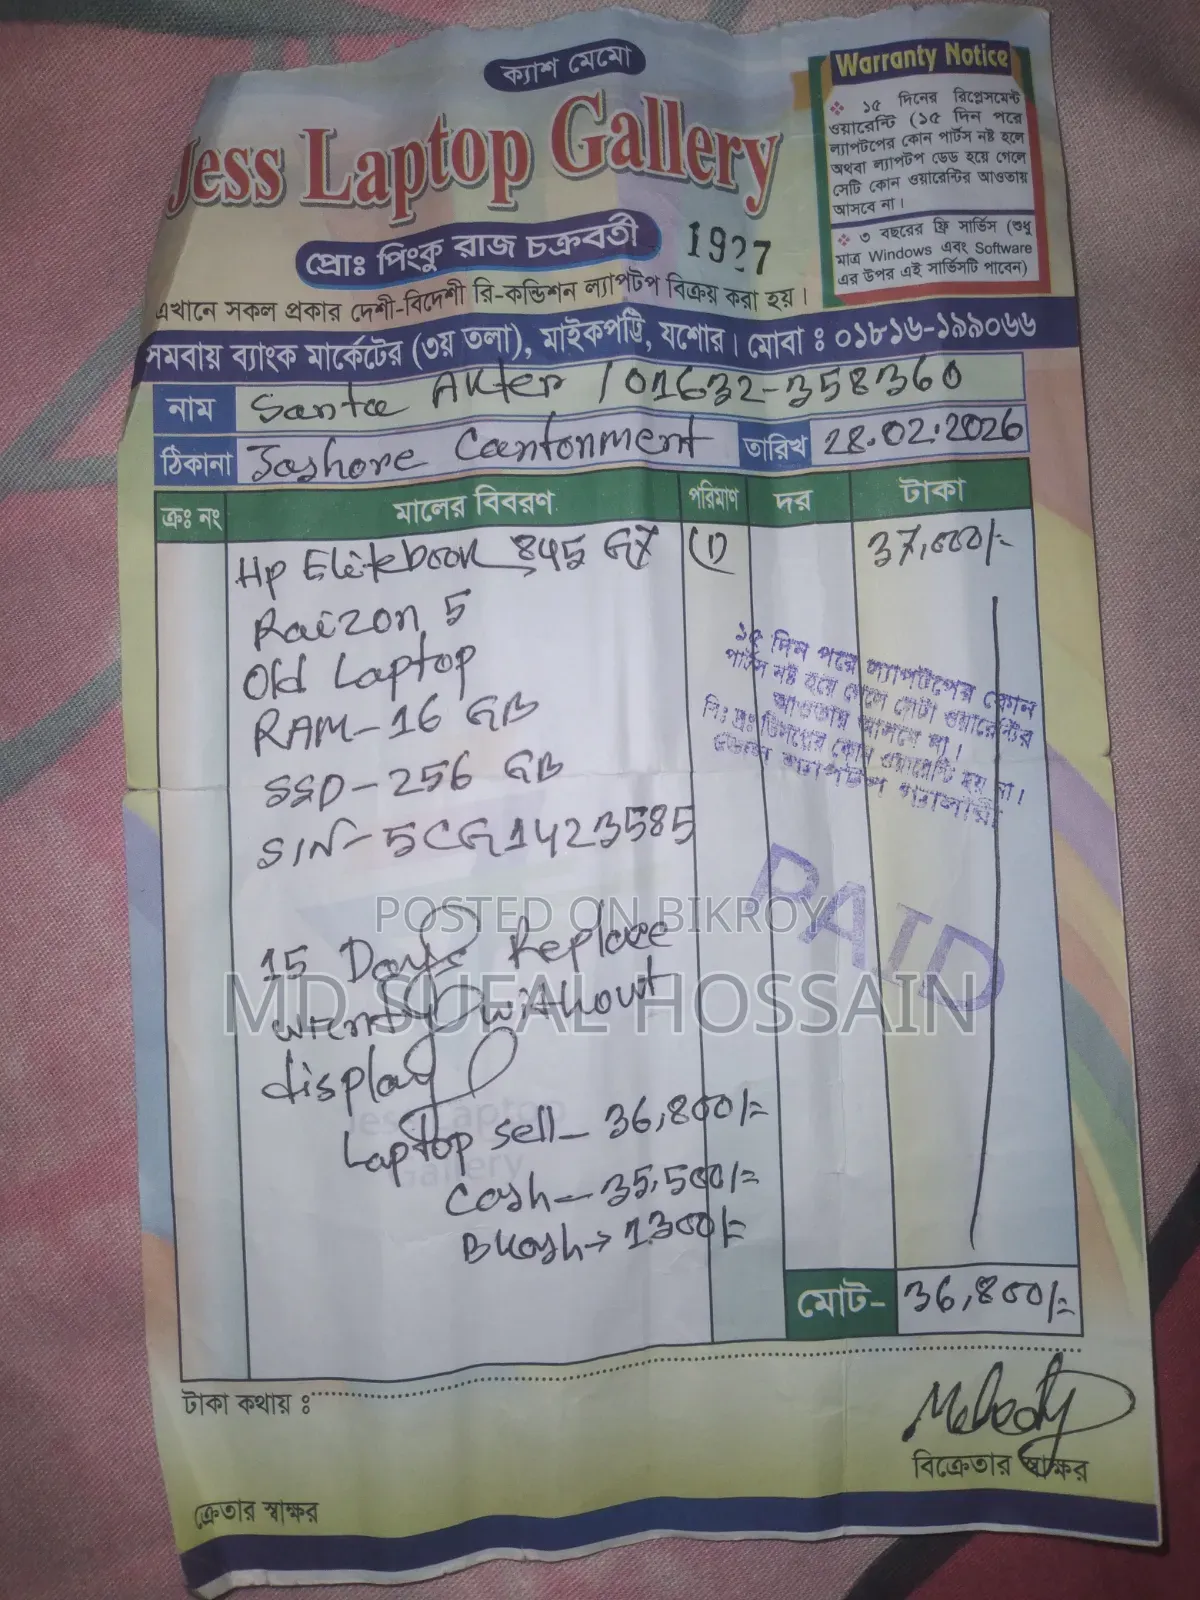 ক্যাশ মেমো
Jess Laptop Gallery
প্রোঃ পিংকু রাজ চক্রবর্তী
1927
Warranty Notice
১৫ দিনের রিপ্লেসমেন্ট
ওয়ারেন্টি (১৫ দিন পরে
ল্যাপটপের কোন পার্টস নষ্ট হলে
অথবা ল্যাপটপ ডেড হয়ে গেলে
সেটি কোন ওয়ারেন্টির আওতায়
আসবে না।
৩ বছরের ফ্রি সার্ভিস (শুধু
মাত্র Windows এবং Software
এর উপর এই সার্ভিসটি পাবেন)
এখানে সকল প্রকার দেশী-বিদেশী রি-কন্ডিশন ল্যাপটপ বিক্রয় করা হয়।
সমবায় ব্যাংক মার্কেটের (৩য় তলা), মাইকপট্টি, যশোর। মোবা : ০১৮১৬-১৯৯০৬৬
নাম Santa Akter / 01632-358360
ঠিকানা Jashore Cantonment তারিখ 28.02.2026
ক্রঃ নং মালের বিবরণ পরিমাণ দর টাকা
Hp Elitebook 845 G7 (1) 37,000/=
Raizon 5
Old Laptop
RAM-16 GB
SSD-256 GB
S/N-5CG1423585
১৫ দিন পরে ল্যাপটপের কোন
পার্টস নষ্ট হয়ে গেলে সেটা ওয়ারেন্টির
আওতায় আসবে না।
বিঃ দ্রঃ ডিসপ্লের কোন ওয়ারেন্টি হয় না।
জেস ল্যাপটপ গ্যালারী
PAID
POSTED ON BIKROY
MD SUFAL HOSSAIN
15 Days Replace
without
display
Laptop sell- 36,800/=
Cash- 35,500/=
Bkash→ 1300/=
মোট- 36,800/=
টাকা কথায় :
বিক্রেতার স্বাক্ষর
ক্রেতার স্বাক্ষর